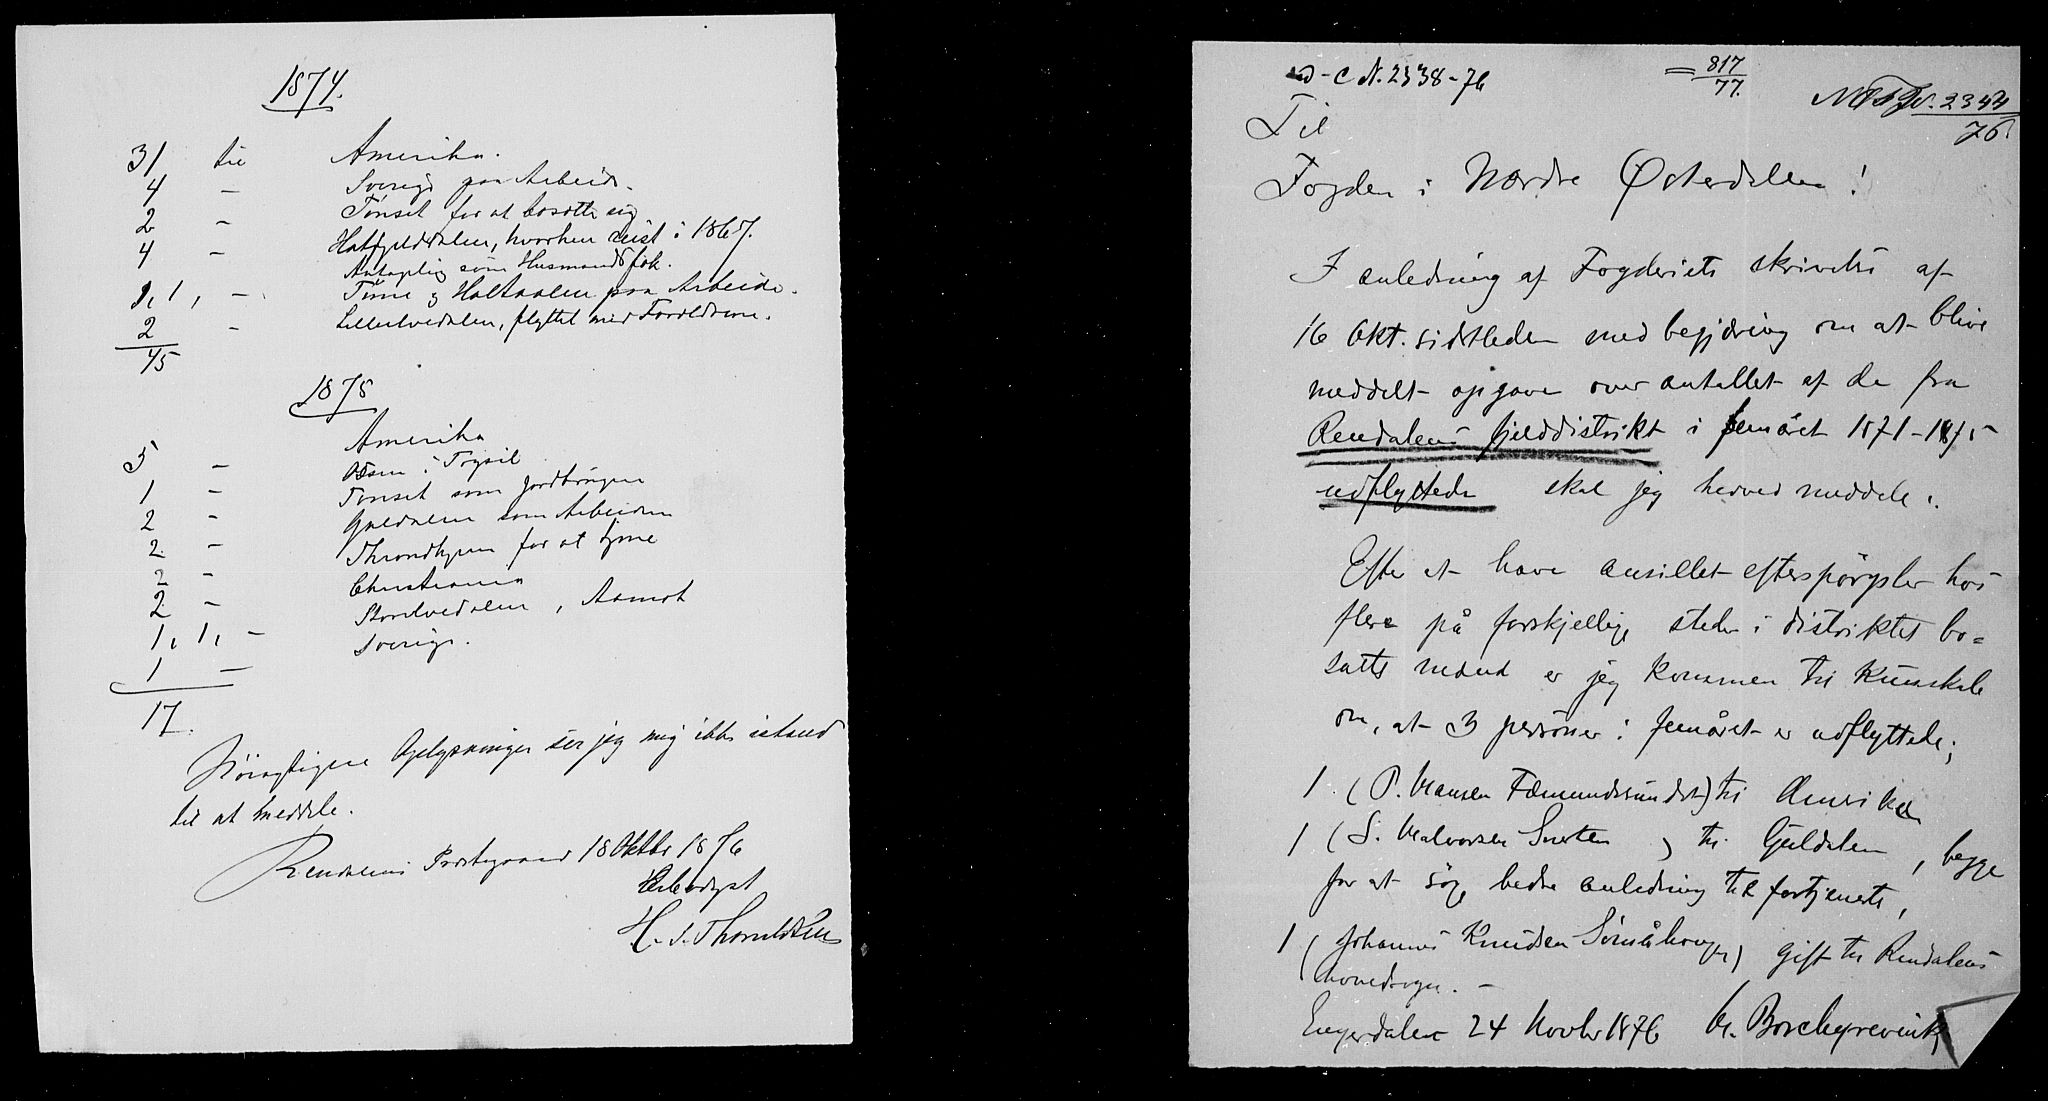 1874.
31 til Amerika.
4 – Sverige paa Arbeide.
2 – Tønset for at bosætte sig
4 – Hatfjelddalen, hvorhen reist i 1867.
Antagelig som Husmandsfolk.
1, 1, – Tønset og Holtaalen paa Arbeide.
2 – Lilleelvedalen, flyttet med Forældrene.
45
1875
5 – Amerika
1 – Osen i Trysil
2 – Tønset som Jordbruger
2. – Guldalen som Arbeidere
2 – Throndhjem for at tjene
2. – Christiania
1, 1, – Storelvedalen, Aamot
1 – Sverige.
17.
Nøiagtigere Oplysninger ser jeg mig ikke istand
til at meddele.
Rendalens Præstegaard 18 Oktbr 1876
Ærbødigst
H. J. Thoraldsen
ad – C N. 2338–76
= 817/77.
2344/76.
Til
Fogden i Nordre Østerdalen!
I anledning af Fogderiets skrivelse af
16 Okt. sidstleden med begjæring om at blive
meddelt opgave over antallet af de fra
Rendalens fjelddistrikt i femåret 1871–1875
udflyttede skal jeg herved meddele:
Efter at have anstillet efterspørgsler hos
flere på forskjellige steder i distriktet bo=
satte mænd er jeg kommen til kundskab
om, at 3 personer i femåret er udflyttede;
1 (P. Hansen Fæmundssundet) til Amerika
1 (S. Halvorsen Snerten) til Guldalen, begge
for at søge bedre anledning til fortjeneste,
1 (Johannes Knudsen Sømåhaugen) gift til Rendalens
hovedsogn. –
Engerdalen 24 Novbr 1876 H. Borchgrevink